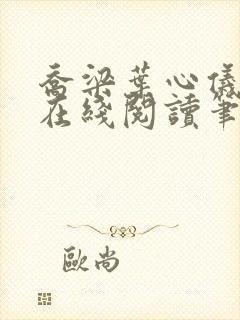 喬梁葉心儀
在綫閱讀筆
歐尚